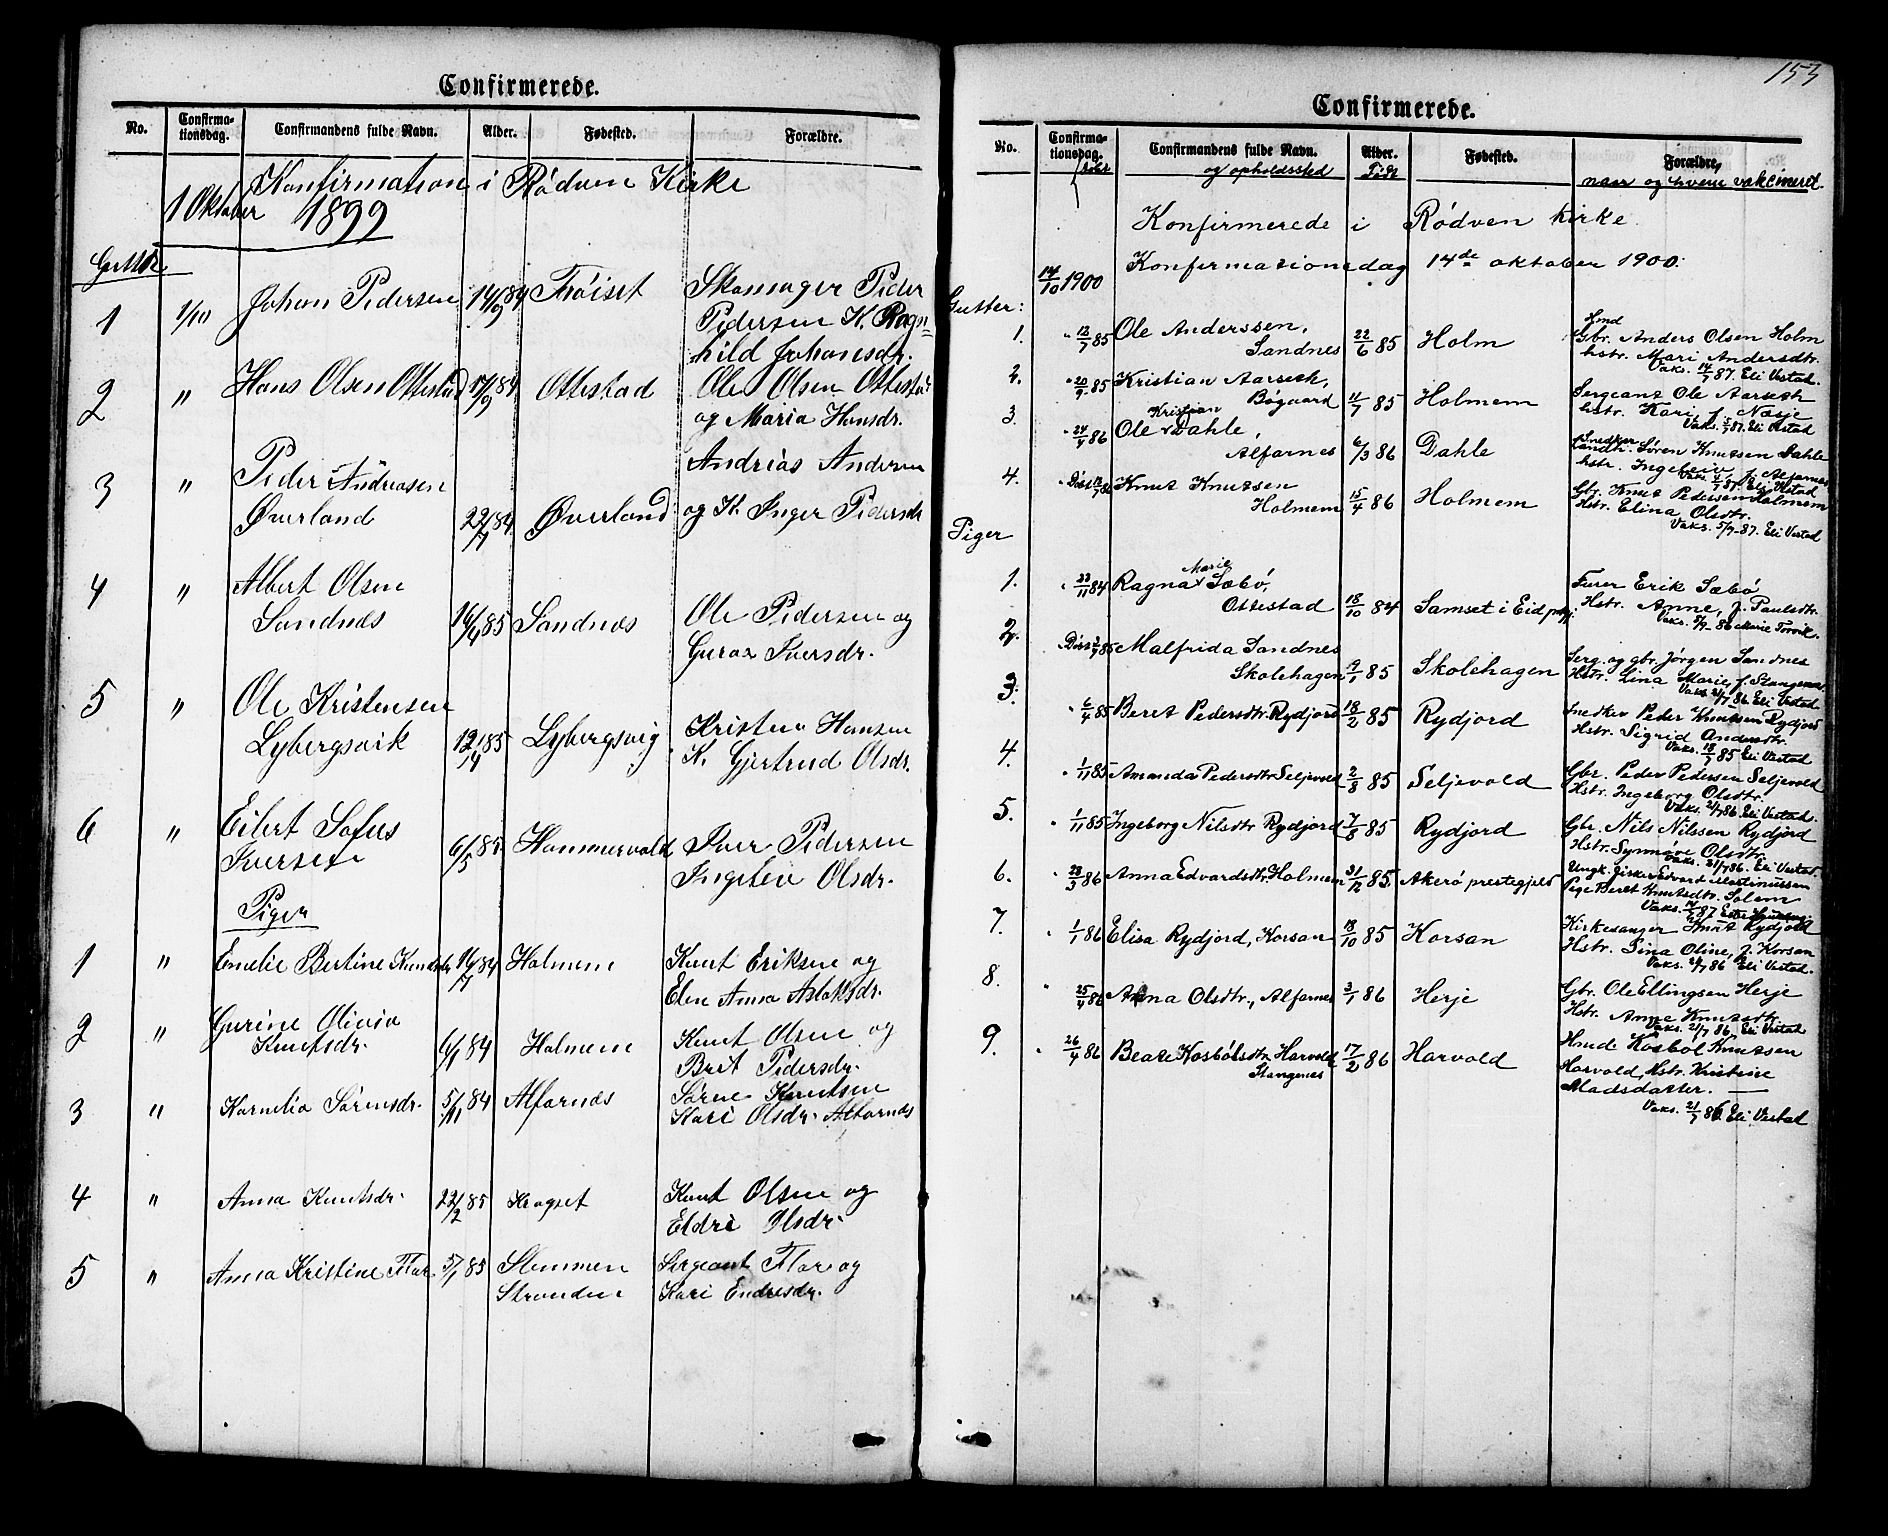 Confirmerede.
No. Confirma-tionsdag. Confirmandens fulde Navn. Alder. Fødested. Forældre.
Konfirmation i Rødven Kirke
1 Oktober 1899
Gutter
1 1/10 Johan Pedersen 14/9 84 Trøiset Skomager Peder
Pedersen K. Ragn-
hild Johansdr.
2 " Hans Olsen Ottestad 17/9 84 Ottestad Ole Olsen Ottestad
og Maria Hansdr.
3 " Peder Andreasen Andrias Andersen
Øverland 22/7 84 Øverland og K. Inger Pedersdr
4 " Albert Olsen
Sandnes 16/4 85 Sandnes Ole Pedersen og
Guroz Iversdr.
5 " Ole Kristensen
Lybergsvik 12/4 85 Lybergsvig Kristen Hansen
K. Gjertrud Olsdr.
6 " Eilert Sofus
Iversen 6/5 85 Hammervold Iver Pedersen
Ingelev Olsdr.
Piger
1 " Emelie Bertine Knudsdr 16/7 84 Holmem Knut Eriksen og
Elen Anna Aslaksdr.
2 " Gurine Olivia
Knutsdr. 6/1 84 Holmem Knut Olsen og
Brit Pedersdr.
3 " Kornelia Sörensdr. 5/11 84 Alfarnæs Sören Knutsen
Kari Olsdr. Alfarnæs
4 " Anna Knutsdr. 22/2 85 Krogset Knut Olsen og
Eldri Olsdr.
5 " Anna Kristine Flor 5/1 85 Slemmen Sergeant Flor og
Stranden Kari Endresdr.
153
Confirmerede.
No. Confirma-tionsdag. Confirmandens fulde Navn. Alder. Fødested. Forældre,
og opholdssted Født naar og hvem vakcineret.
Konfirmerede i Rødven kirke
14/10 1900 Konfirmasionsdag 14de oktober 1900.
Gutter:
1. " 12/7 85 Ole Anderssen, Hmd
Sandnes 22/6 85 Holm Gbr. Anders Olsen Holm
hstr. Mari Andersdtr.
Vaks. 14/7 87. Eli Vestad.
2. " 20/9 85 Kristian Aarseth,
Bøgaard 11/7 85 Holmem Sergeant Ole Aarseth
hstr. Kari, f. Næsje
Vaks. 5/7 87. Eli Vestad
3. " 24/4 86 Ole Kristian Dahle,
Alfarnes 6/3 86 Dahle Snedker Landh. Søren Knutsen Dahle
hstr. Ingeleiv, f. Alfarnes
Vaks. 5/7 87. Eli Vestad
4. " Døbt 12/7 86 Knut Knutsen
Holmem 15/4 86 Holmem Gbr. Knut Pedersen Holmem
Hstr. Elina Olsdtr.
Vaks. 5/7-87. Eli Vestad
Piger
1. " 22/11 84 Ragna Marie Sæbø,
Ottestad 18/10 84 Samset i Eid prgj. Furer Erik Sæbø
Hstr. Anne, f. Paulsdtr.
Vaks. 5/9-86 Marie Torvik.
2. " Døbt 2/7 85 Malfrida Sandnes
Skolehagen 19/1 85 Skolehagen Serg. og gbr. Jørgen Sandnes
Hstr. Lina Marie, f. Stangenes
Vaks. 21/7 86 Eli Vestad
3. " 6/4 85 Beret Pedersdtr. Rydjord 18/2 85 Rydjord Snedker Peder Knutsen Rydjord
Hstr. Sigrid Andersdtr.
Vaks. 18/7 85 Eli Vestad
4. " 1/11 85 Amanda Pedersdtr Seljevold 2/8 85 Seljevold Gbr. Peder Pedersen Seljevold
Hstr. Ingeborg Olsdtr.
Vaks. 21/7 86 Eli Vestad.
5. " 1/11 85 Ingeborg Nilsdtr Rydjord 7/8 85 Rydjord Gbr. Nils Nilssen Rydjord
Hstr. Synnøve Olsdtr.
Vaks. 21/7 86. Eli Vestad.
6. " 28/3 86 Anna Edvardsdtr. Holmem 31/12 85. Akerø prestegjeld Ungk. fisker Edvard Martinussen
Pige Beret Knutsdtr. Solem
Vaks. 14/7 87
7. " 1/1 86 Elisa Rydjord, Korsan 18/10 85 Korsan Kirkesanger Knut Rydjord
Hstr. Lina Oline, f. Korsan
Vaks. 21/7 86 Eli Vestad.
8. " 25/4 86 Anna Olsdtr., Alfarnes 3/1 86 Herje Gbr. Ole Ellingsen Herje
Hstr. Anne Knutsdtr.
Vaks. 21/7 86, Eli Vestad
9. " 26/4 86 Beate Kosbølsdtr. Harvold 17/2 86 Harvold Hmd. Kosbøl Knutsen
Stangenes Harvold, Hstr. Kristine
Madsdatter.
Vaks. 21/7 86. Eli Vestad